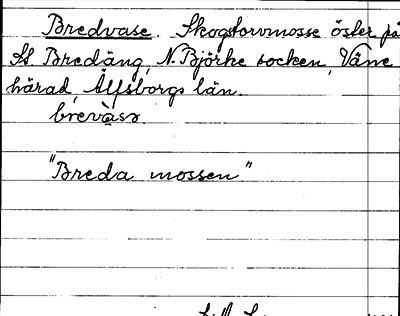 Bredvase. Skogstorvmosse öster på
St Bredäng, N. Björke socken, Väne
härad, Älfsborgs län.
brevàsa.
"Breda mossen"